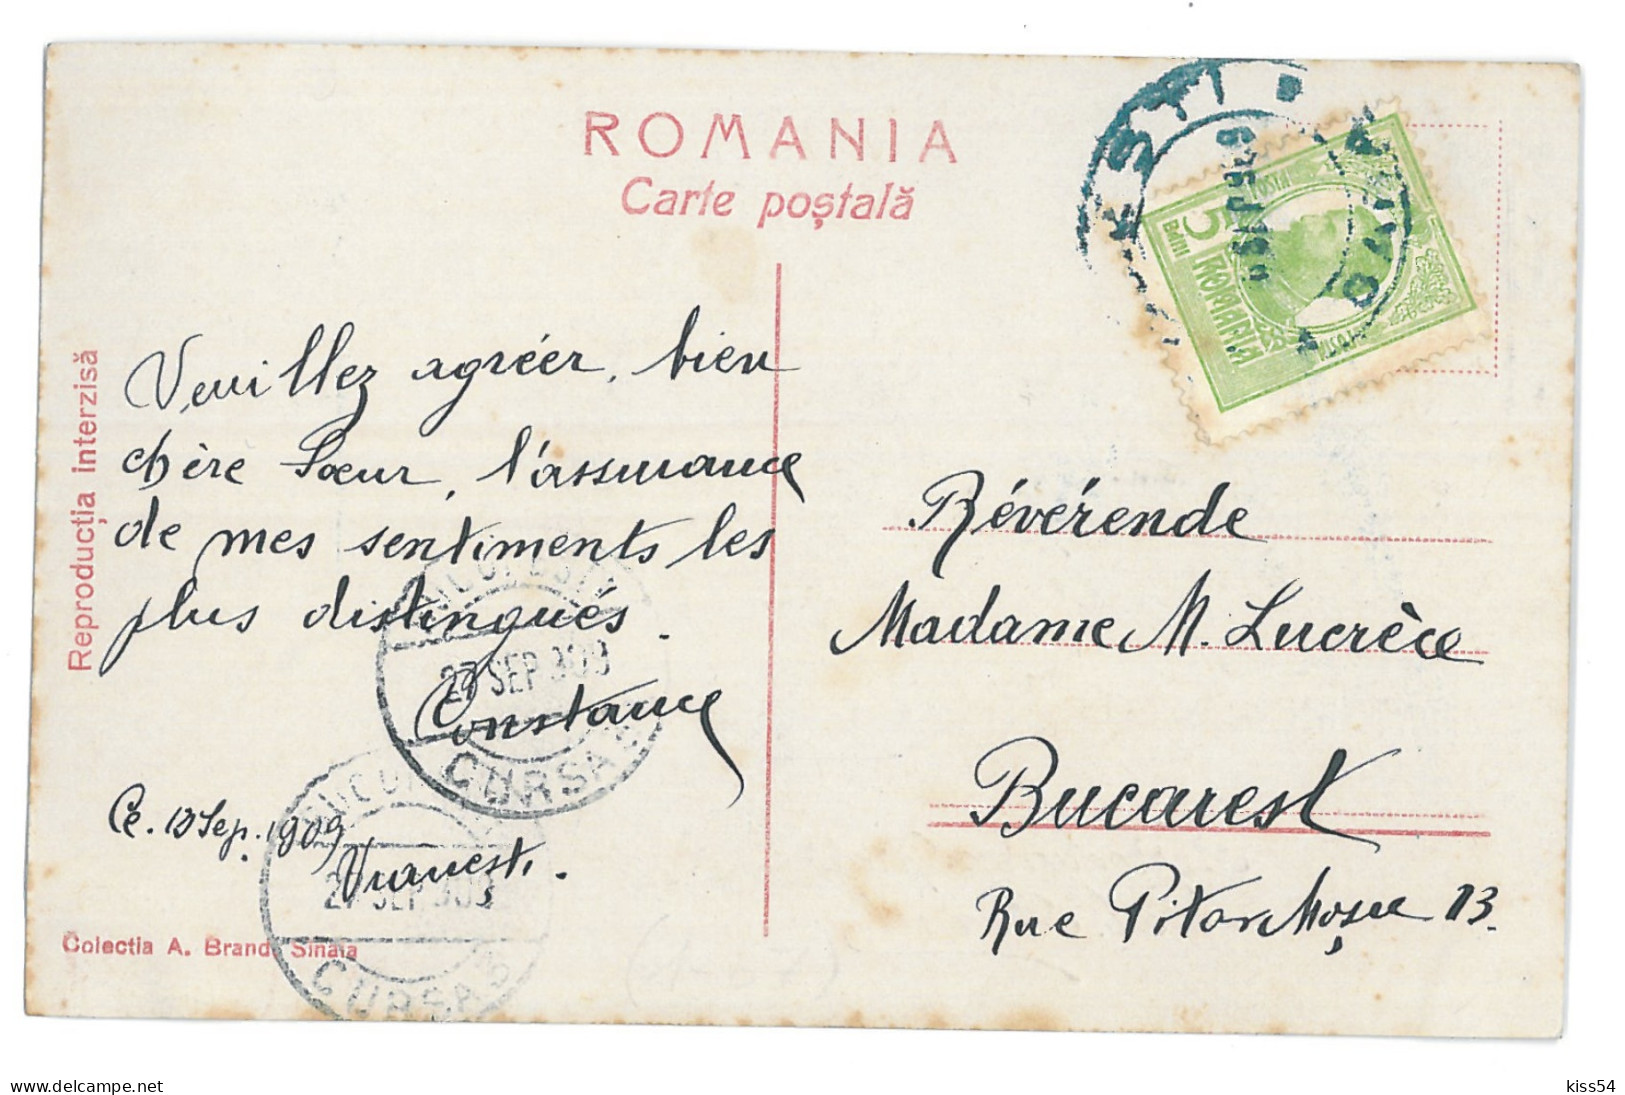 ROMANIA
Carte poștală
Reproducția interzisă
Veuillez agréer, bien
chère Sœur, l'assurance
de mes sentiments les
plus distingués.
Constance
Ce. 13 Sep. 1909
Colectia A. Brand Sinaia
5
BANI
ROMANIA
POSTA
POSTA
27 SEP 909
CURSA
27 SEP 909
CURSA 3
Révérende
Madame M. Lucrèce
Bucarest
Rue Pitar Moșu 13.
delcampe.net
kiss54